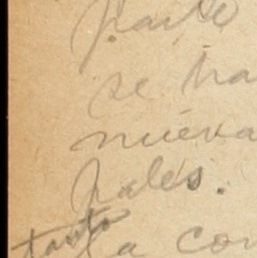 parte
se ha
nueva
pales.
tanto
la con